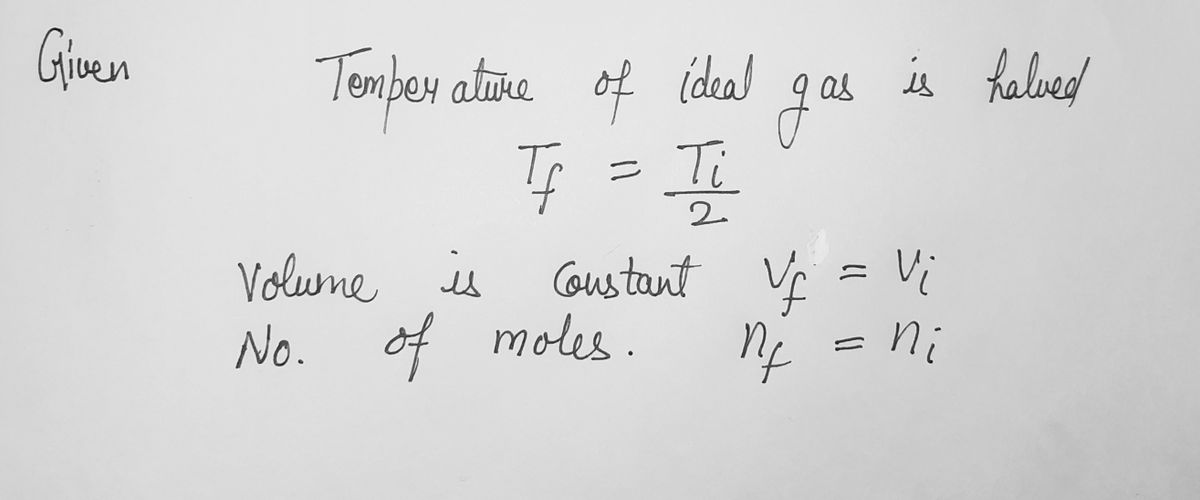 Given Temperature of ideal gas is halved
Tf = Ti/2
Volume is Constant Vf = Vi
No. of moles. nf = ni